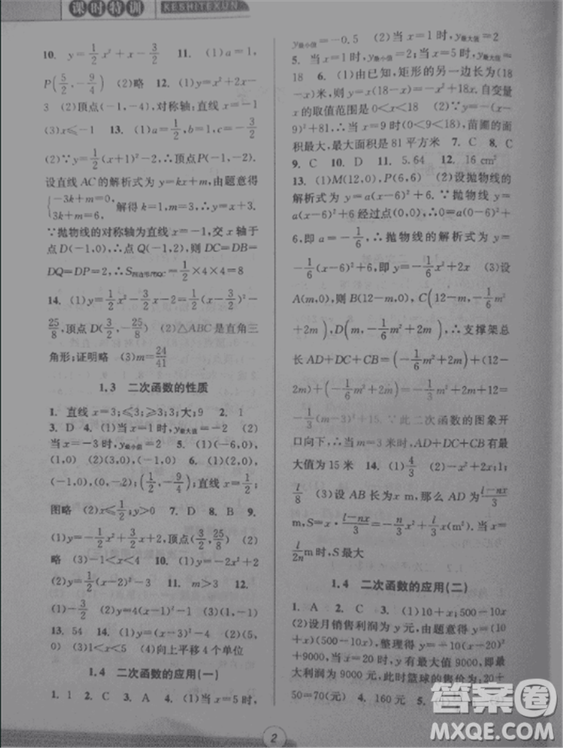 课时特训 KESHITEXUN
10. y=1/2x²+x-3/2 11. (1)y=x²-3x
P(5/2,-9/4) (2)略 12. (1)y=x²+2x-3
(2)顶点(-1,-4) 对称轴:直线x=-1
(3)x≤-1 13. (1)a=1/2,b=1,c=-3/2
(2)∵y=1/2(x+1)²-2,∴顶点P(-1,-2).
设直线AC的解析式为y=kx+m,由题意得
{-3k+m=0, m=6. 解得{k=2, m=6.
∵抛物线的对称轴为直线x=-1,交x轴于
点D(-1,0),∴点Q(-1,2),∴DC=DB=
DQ=DP=2,∴S四边形PBQC=1/2×4×4=8
14. (1)y=1/2x²-3/2x-2=1/2(x-3/2)²-
25/8,顶点D(3/2,-25/8) (2)△ABC是直角三
角形;证明略 (3)m=24/41
1.3 二次函数的性质
1. 直线x=3;≤3;≥3;3;大;9 2. ±1
3. D 4. (1)当x=1时,y最大值=-2 (2)
当x=-3时,y最小值=-2 5. (1)(-6,0),
(1,0) (2)(32,0) 6. (1)(2,0),(-1,0),
(0,-2);直线x=1/2;(1/2,-9/4),
图略 (2)x≤1/2;y>0 7. D 8. B 9.
(1)y=-1/2x²+x+3/2 顶点(5/2,25/8) (2)
略 (3)-1<x<4 10. (1)y=-2x²+4x
(2)y=1/2x²-2x-1 11. m>3 12.
(1)0<x<3 (2)y=4(x-1/2)²-1或y=
-4(x-1/2)²+1
13. (1)54 (2)0<x<5 14. (1)-3 (2)0
(3)x<-5或x>1 (4)向上平移4个单位
1.4 二次函数的应用(一)
1. 1 2. 2 3. C 4. A 5. (1)当x=5时,
y最小值=-0.5 (2)当x=4时,y最大值=1
5. 当x=3时,y最大值=
18 6. (1)由已知,矩形的另一边长为(18
-x)米,则y=x(18-x)=-x²+18x,自变量
x的取值范围是0<x<18 (2)∵y=-(x-
9)²+81,∴当x=9时(0<9<18),苗圃的面
积最大,最大面积是81平方米 7. B 8. C
9. C 10. D 11. 5.64 12. 16 cm²
13. (1)M(12,0),P(6,6) (2)设抛物线的
解析式为y=a(x-6)²+6. ∵抛物线y=
a(x-6)²+6经过点(0,0),∴0=a(0-6)²+
6,即a=-1/6,∴抛物线的解析式为y=
-1/6(x-6)²+6,即y=-1/6x²+2x (3)设
A(m,0),则B(12-m,0),C(12-m,-1/6m²
+2m),D(m,-1/6m²+2m),∴支撑架总
长AD+DC+CB=(-1/6m²+2m)+(12-
2m)+(-1/6m²+2m)=-1/3m²+2m+12=
-1/3(m-3)²+15. ∵此二次函数的图象开
口向下,∴当m=3米时,AD+DC+CB有最
大值为15米 14. (1)4/3 (2)-x²+2x;
l/8 (3)设AB长为x m,那么AD为(l-nx)/3
m,S=x·(l-nx)/3=-n/3x²+l/3x(m²).当x=
l/2n时,S最大
1.4 二次函数的应用(二)
1. A 2. C 3. C 4. (1)10+x;500-10x
(2)设月销售利润为y元,由题意得y=(10+
x)(500-10x),整理得y=-10(x-20)²+
9000,当x=20时,y的最大值为9000,20+
50=70(元) 4. 160元 5.
2
答案圈
MXQE.COM